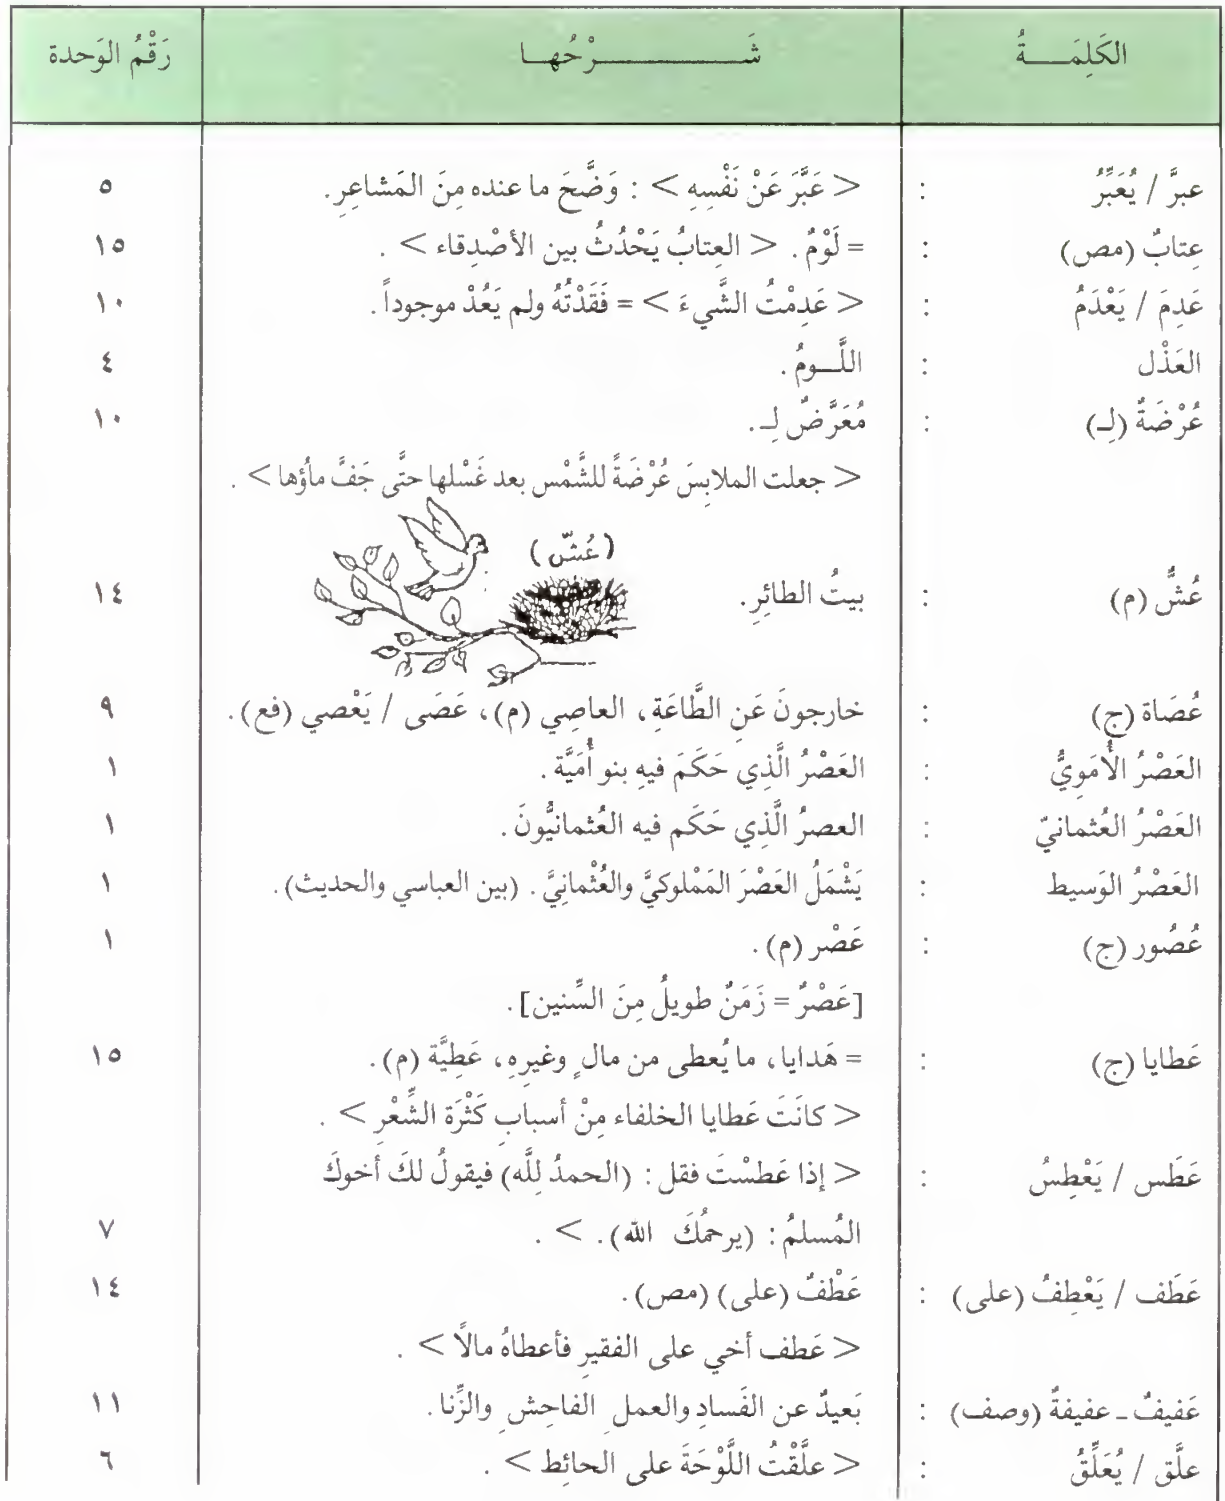 الكَلِمَـــةُ شَـــــــــرْحُهـا رَقْمُ الوَحدة
عبرَّ / يُعَبِّرُ : < عَبَّرَ عَنْ نَفْسِهِ > : وَضَّحَ ما عنده مِنَ المَشاعِرِ . ٥
عِتابٌ (مص) : = لَوْمٌ . < العِتابُ يَحْدُثُ بين الأصْدِقاء > . ١٥
عَدِمَ / يَعْدَمُ : < عَدِمْتُ الشَّيءَ > = فَقَدْتُهُ ولم يَعُدْ موجوداً . ١٠
العَذْل : اللَّــومُ . ٤
عُرْضَةٌ (لِـ) : مُعَرَّضٌ لِـ . ١٠
< جعلت الملابِسَ عُرْضَةً للشَّمْس بعد غَسْلها حتَّى جَفَّ ماؤها > .
(عُشّ)
عُشٌّ (م) : بيتُ الطائِرِ . ١٤
عُصَاة (ج) : خارجونَ عَنِ الطَّاعَةِ ، العاصِي (م) ، عَصَى / يَعْصي (فع) . ٩
العَصْرُ الأُمَوِيُّ : العَصْرُ الَّذِي حَكَمَ فيهِ بنو أُمَيَّة . ١
العَصْرُ العُثمانيّ : العصرُ الَّذِي حَكَم فيه العُثمانيُّونَ . ١
العَصْرُ الوَسيط : يَشْمَلُ العَصْرَ المَمْلوكيَّ والعُثْمانِيَّ . (بين العباسي والحديث) . ١
عُصُور (ج) : عَصْر (م) . ١
[عَصْرٌ = زَمَنٌ طويلُ مِنَ السِّنين] .
عَطايا (ج) : = هَدايا ، ما يُعطى من مالٍ وغيرِهِ ، عَطِيَّة (م) . ١٥
< كانَتَ عَطايا الخلفاء مِنْ أسبابِ كَثْرَة الشِّعْرِ > .
عَطَس / يَعْطِسُ : < إذا عَطسْتَ فقل : (الحمدُ لِلَّه) فيقولُ لكَ أخوكَ
المُسلمُ : (يرحمُكَ الله) . > . ٧
عَطَف / يَعْطِفُ (على) : عَطْفٌ (على) (مص) . ١٤
< عَطف أخي على الفقيرِ فأعطاهُ مالًا > .
عَفيفٌ ـ عفيفةٌ (وصف) : بَعيدٌ عن الفَسادِ والعملِ الفاحِشِ والزِّنا . ١١
علَّق / يُعَلِّقُ : < علَّقْتُ اللَّوْحَةَ على الحائِط > . ٦